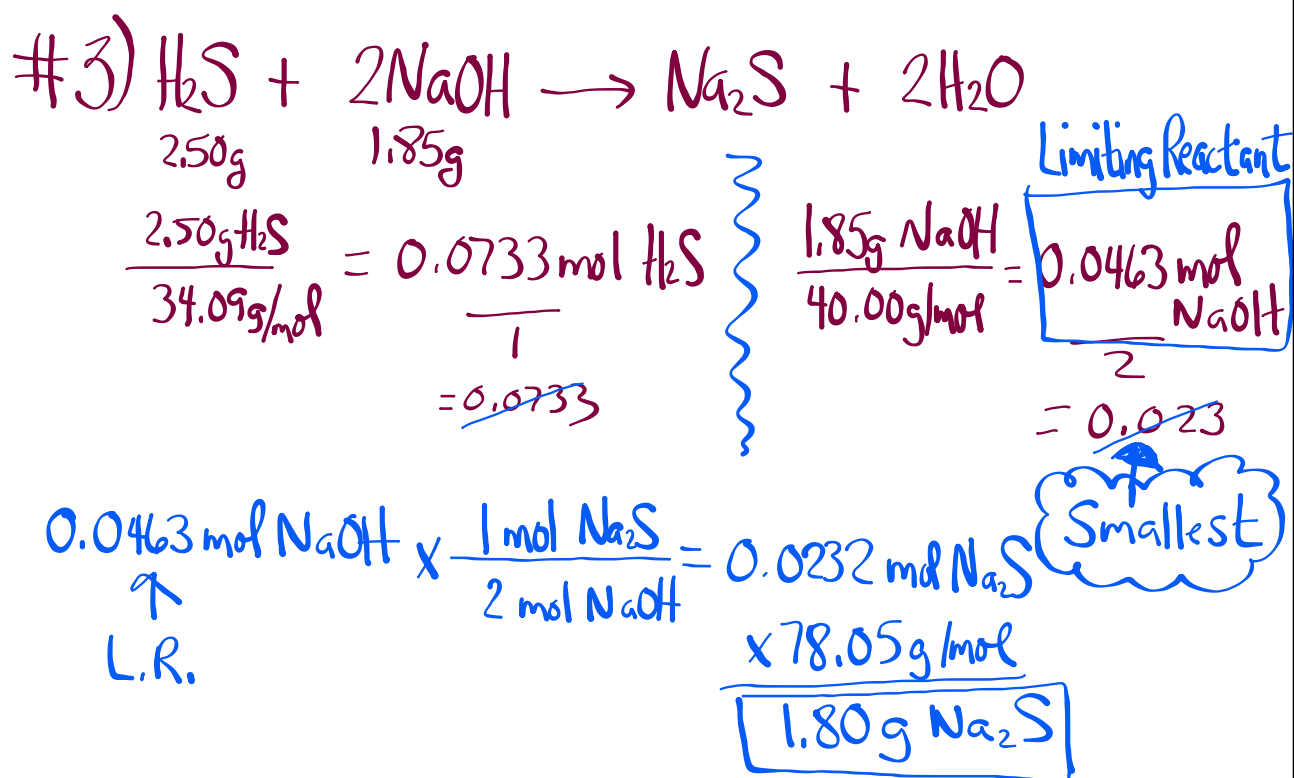 #3) H₂S + 2NaOH → Na₂S + 2H₂O
2.50g 1.85g
Limiting Reactant
2.50g H₂S
34.09g/mol
= 0.0733 mol H₂S
1
= 0.0733
1.85g NaOH
40.00g/mol
= 0.0463 mol
NaOH
2
= 0.023
Smallest
0.0463 mol NaOH x 1 mol Na₂S / 2 mol NaOH = 0.0232 mol Na₂S
L.R.
x 78.05 g/mol
1.80 g Na₂S